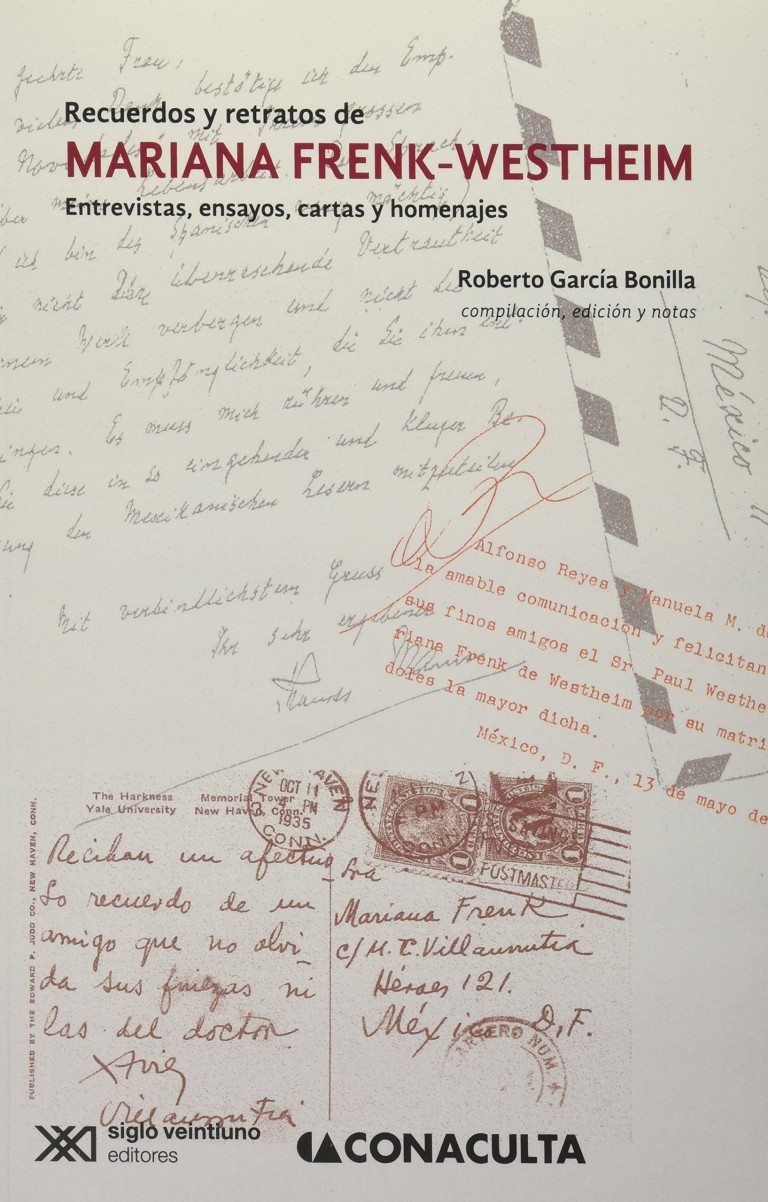 geehrte Frau,
bestätige ich den Emp.
Recuerdos y retratos de
MARIANA FRENK-WESTHEIM
Entrevistas, ensayos, cartas y homenajes
ich bin des Spanischen mächtig)
nicht Ihre überraschende Vertrautheit
Roberto García Bonilla
compilación, edición y notas
Werk verbergen und nicht die
und Empfänglichkeit, die Sie ihm
Es muss mich rühren und freuen,
diese in so eingehender und kluger Be.
den Mexikanischen Lesern mitzuteilen
Mit verbindlichstem Gruss
Ihr sehr ergebener
México 11
D. F.
Alfonso Reyes y Manuela M. de
la amable comunicación y felicitan
sus finos amigos el Sr. Paul Westhe
riana Frenk de Westheim por su matri
doles la mayor dicha.
México, D. F., 13 de mayo de
The Harkness Memorial Tower
Yale University New Haven, Conn.
NEW HAVEN
OCT 11
4 PM
1935
CONN.
POSTMASTER
PUBLISHED BY THE EDWARD P. JUDD CO., NEW HAVEN, CONN.
Reciban un afectuo
so recuerdo de un
amigo que no olvi_
da sus finezas ni
las del doctor
Xavier
Villaurrutia
Sra
Mariana Frenk
c/ M. T. Villaurrutia
Héroes 121.
México, D.F.
CARTERO NUM.
siglo veintiuno
editores
CONACULTA